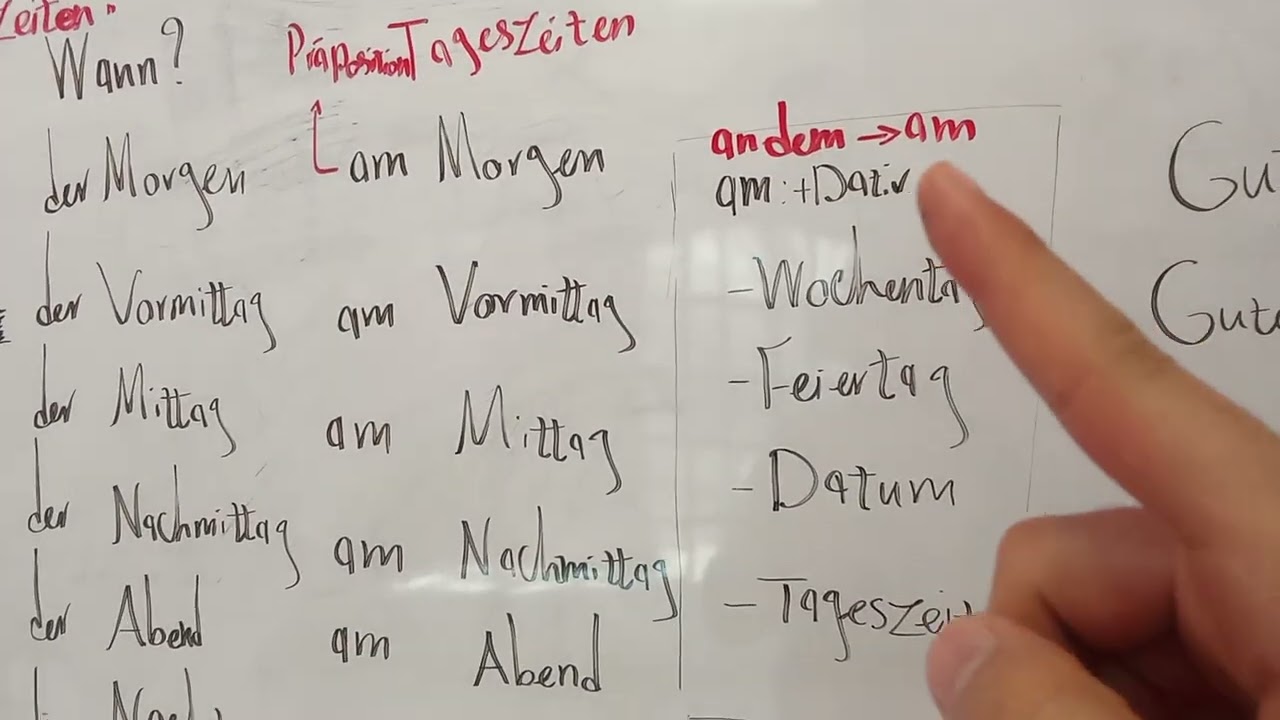 Zeiten"
Wann?
Präposition Tageszeiten
der Morgen
am Morgen
der Vormittag
am Vormittag
der Mittag
am Mittag
der Nachmittag
am Nachmittag
der Abend
am Abend
an dem → am
am : + Dativ
- Wochentag
- Feiertag
- Datum
- Tageszeit
Gu
Gute